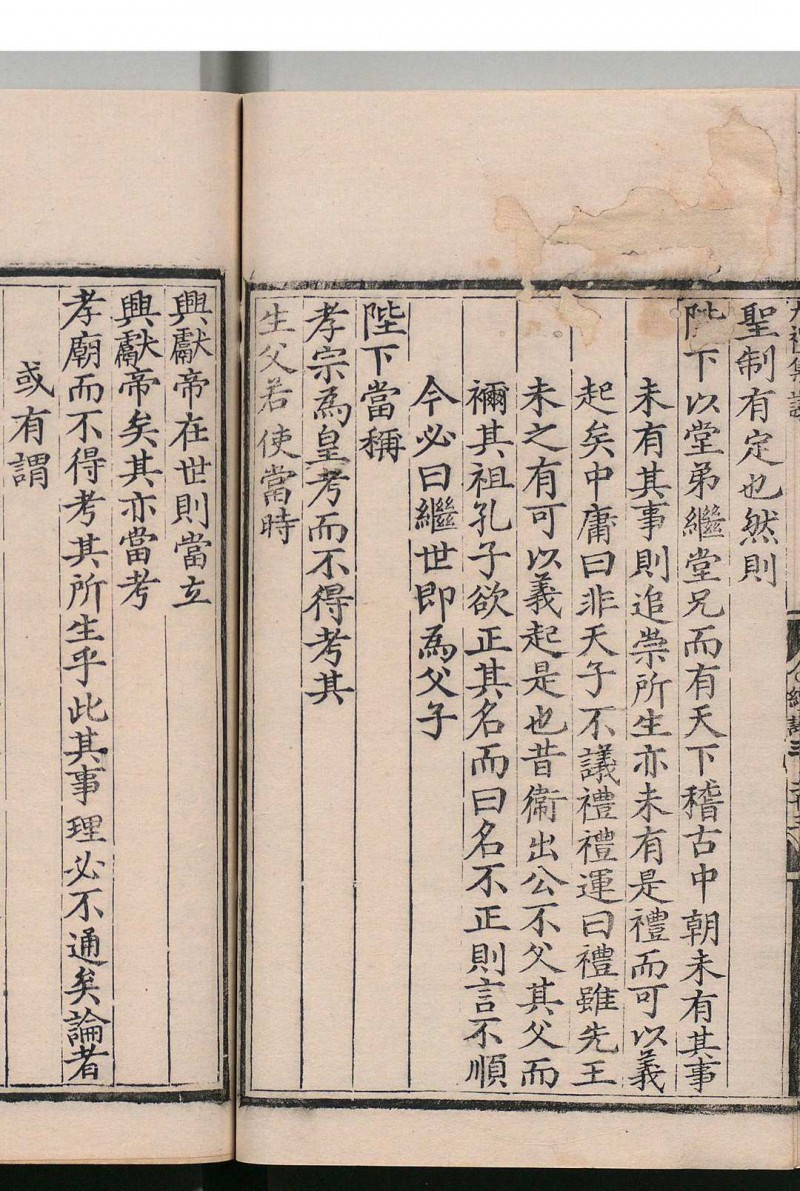 聖制有定也然則
陛下以堂弟繼堂兄而有天下稽古中朝未有其事
未有其事則追崇所生亦未有是禮而可以義
起矣中庸曰非天子不議禮禮運曰禮雖先王
未之有可以義起是也昔衞出公不父其父而
禰其祖孔子欲正其名而曰名不正則言不順
今必曰繼世即為父子
陛下當稱
孝宗為皇考而不得考其
生父若使當時
興獻帝在世則當立
興獻帝矣其亦當考
孝廟而不得考其所生乎此其事理必不通矣論者
或有謂